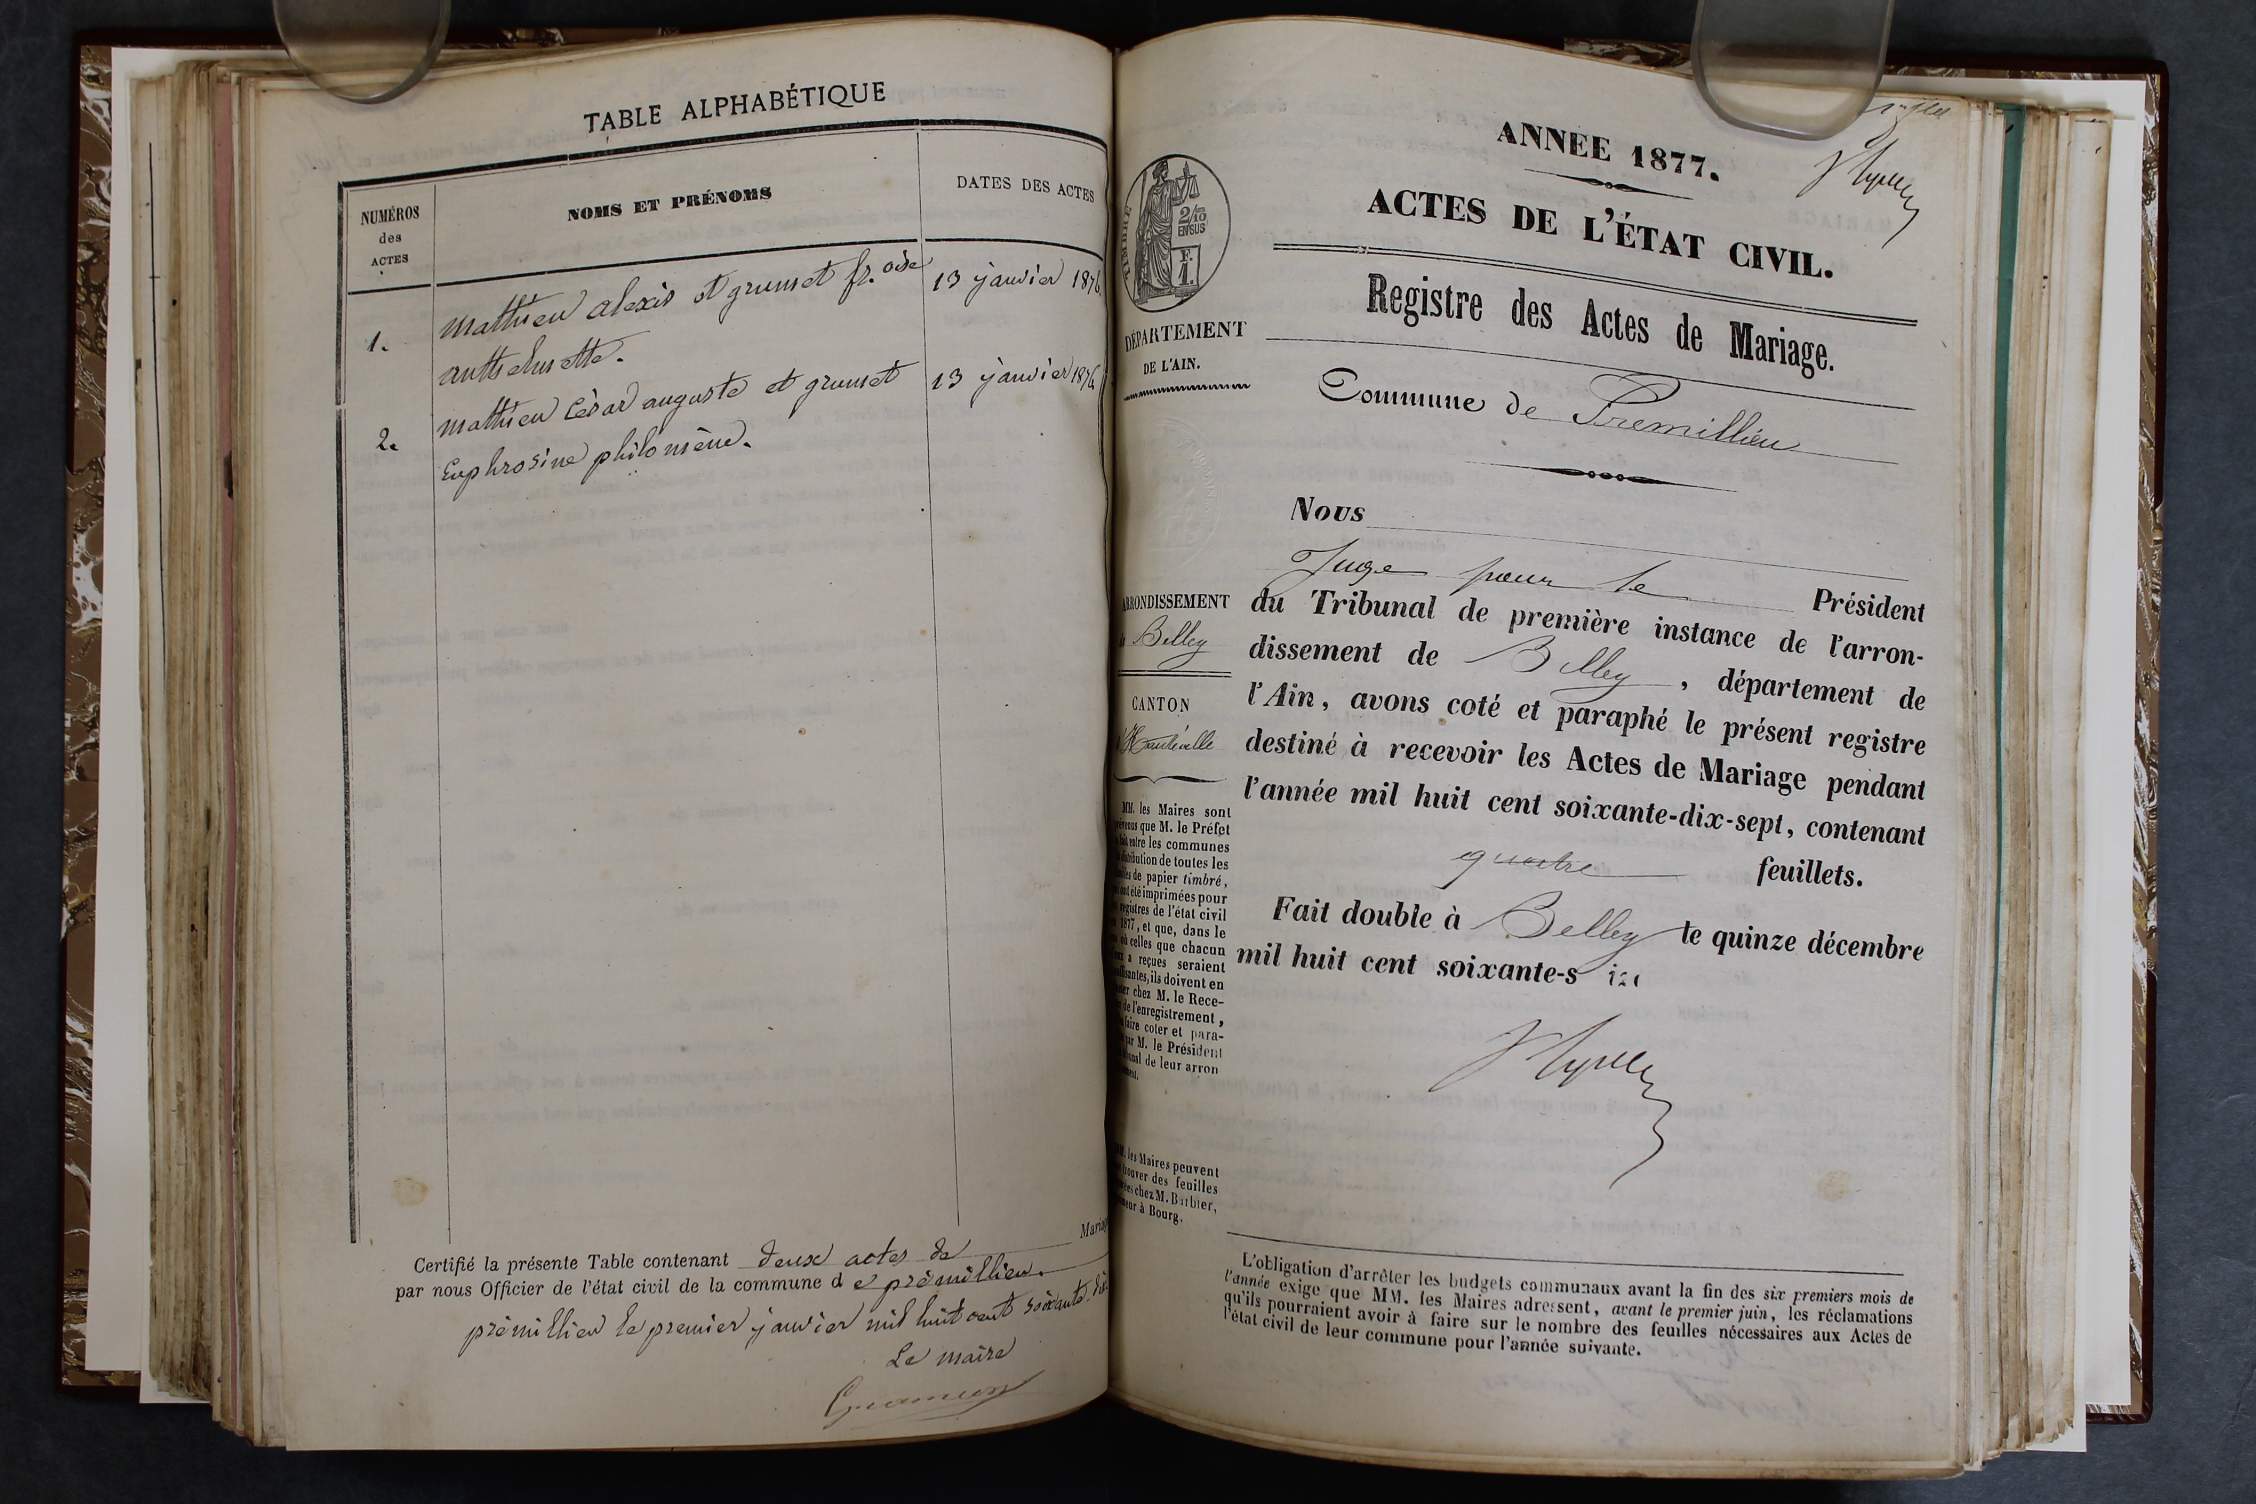 TABLE ALPHABÉTIQUE
NUMÉROS
des
ACTES
NOMS ET PRÉNOMS
DATES DES ACTES
1.
Mathieu alexis et grumet fr.oise
anthelmette.
13 janvier 1876.
2.
Mathieu César auguste et grumet
Euphrosine philomène.
13 janvier 1876
Certifié la présente Table contenant deux actes de Mariage
par nous Officier de l'état civil de la commune de prémillieu.
prémillieu le premier janvier mil huit cent soixante dix
Le maire
ANNÉE 1877.
ACTES DE L'ÉTAT CIVIL.
Registre des Actes de Mariage.
Commune de Prémillieu
TIMBRE
2/10
EN SUS
F.
1.
DÉPARTEMENT
DE L'AIN.
ARRONDISSEMENT
de Belley
CANTON
d'Hauteville
MM. les Maires sont
prévenus que M. le Préfet
fait entre les communes
distribution de toutes les
feuilles de papier timbré,
ont été imprimées pour
registres de l'état civil
1877, et que, dans le
cas où celles que chacun
a reçues seraient
insuffisantes, ils doivent en
chez M. le Rece-
de l'enregistrement,
faire coter et para-
par M. le Président
Tribunal de leur arron
MM. les Maires peuvent
trouver des feuilles
chez M. Barbier,
à Bourg.
Nous
Juge pour le Président
du Tribunal de première instance de l'arron-
dissement de Belley, département de
l'Ain, avons coté et paraphé le présent registre
destiné à recevoir les Actes de Mariage pendant
l'année mil huit cent soixante-dix-sept, contenant
quatre feuillets.
Fait double à Belley le quinze décembre
mil huit cent soixante-s
L'obligation d'arrêter les budgets communaux avant la fin des six premiers mois de
l'année exige que MM. les Maires adressent, avant le premier juin, les réclamations
qu'ils pourraient avoir à faire sur le nombre des feuilles nécessaires aux Actes de
l'état civil de leur commune pour l'année suivante.